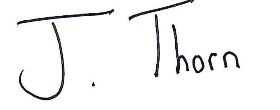 J. Thorn